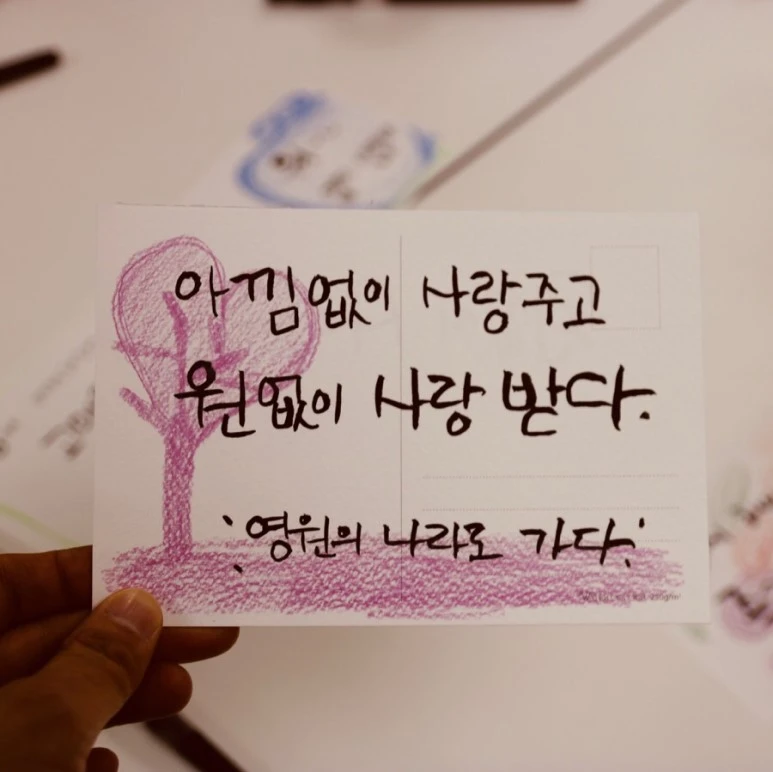 아낌없이 사랑주고
원없이 사랑 받다.
'영원의 나라로 가다.'